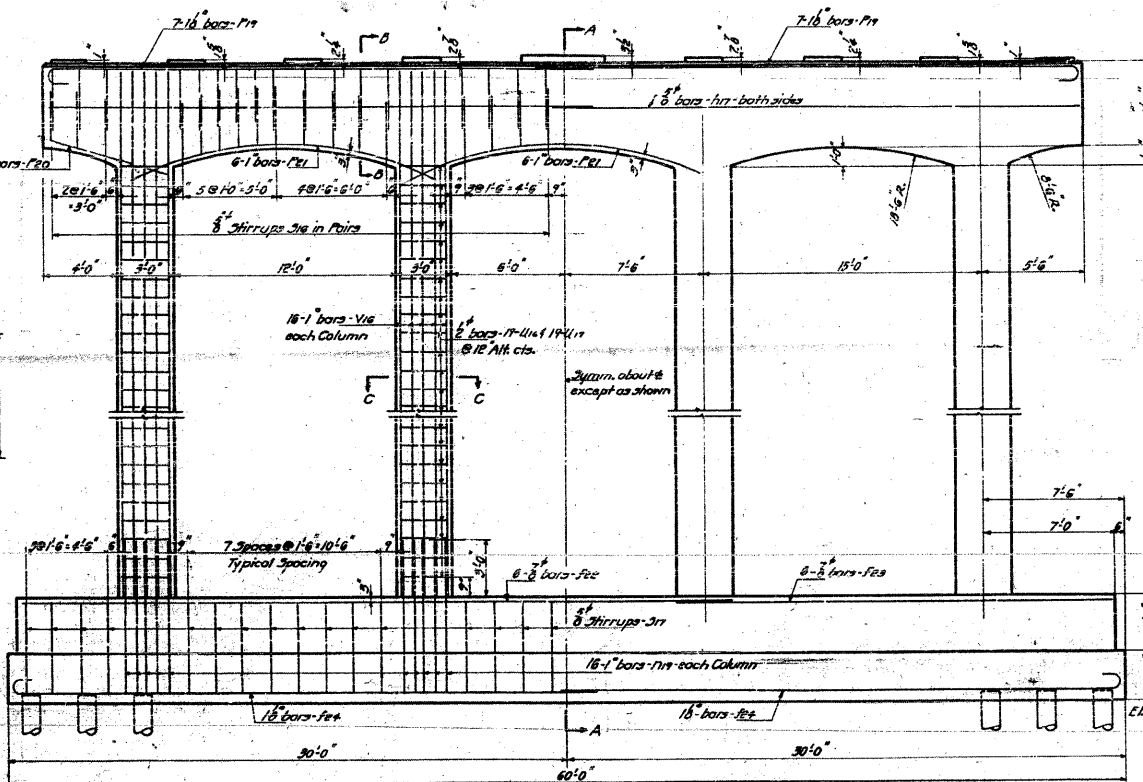 7-1⅛" bars-P19
7-1⅛" bars-P19
B
A
1"
1⅝"
2¼"
2⅞"
3½"
2⅞"
2¼"
1⅝"
1"
⅝"ϕ bars-h17-both sides
bars-P20
6-1" bars-P21
3"
B
6-1" bars-P21
3"
1'-0"
18'-6" R.
8'-6" R.
2@1'-6"
=3'-0"
6"
6"
5@1'-0"=5'-0"
4@1'-6"=6'-0"
6"
9"
3@1'-6"=4'-6"
9"
⅝"ϕ Stirrups S16 in Pairs
4'-0"
3'-0"
12'-0"
3'-0"
6'-0"
7'-6"
15'-0"
5'-6"
16-1" bars-V16
each Column
½"ϕ bars-17-U16 & 17-U17
@ 12" Alt. cts.
Symm. about ℄
except as shown
C
C
7'-6"
7'-0"
6"
3@1'-6"=4'-6"
6"
9"
7 Spaces @ 1'-6"=10'-6"
9"
Typical Spacing
3'-0"
9"
3"
6-⅞"ϕ bars-F22
6-⅞"ϕ bars-F23
⅝"ϕ Stirrups-S17
16-1" bars-N19-each Column
1⅛" bars-F24
1⅛" bars-F24
El.
A
30'-0"
30'-0"
60'-0"